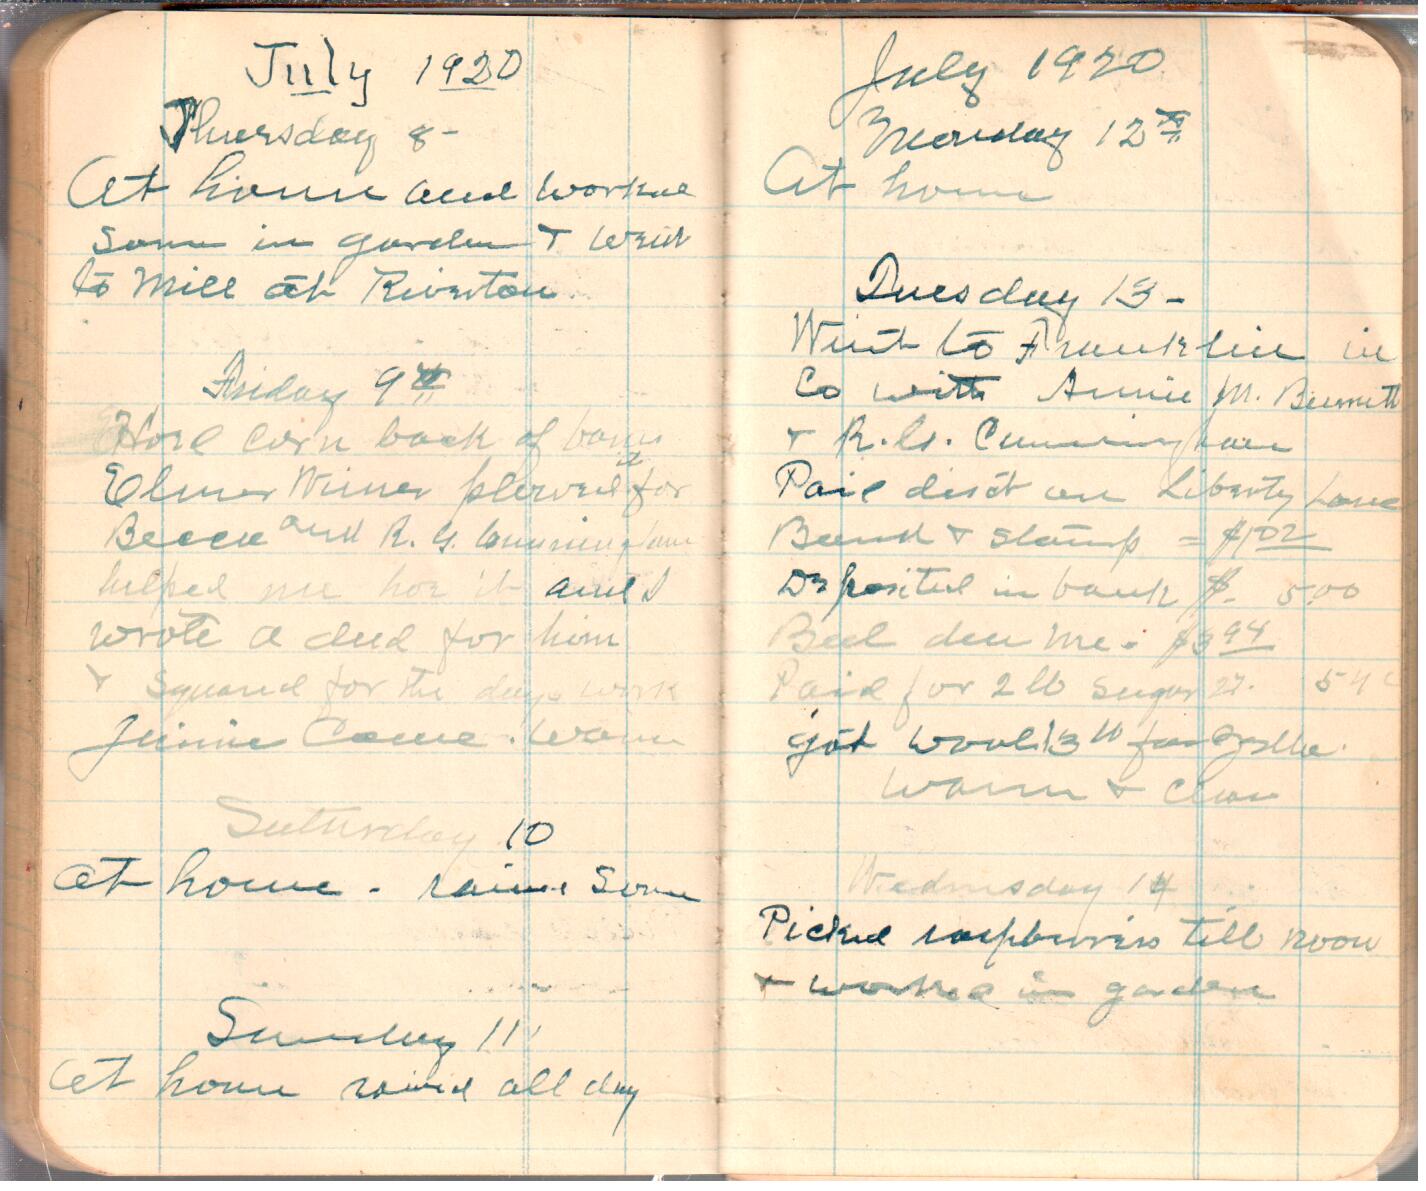 July 1920
Thursday 8-
At home and worked
some in garden & went
to Mill at Riverton
Friday 9th
Hoed corn back of barn
Elmer Wimer plowed it for
and R. G. Cunningham
helped me hoe it and I
wrote a deed for him
& squared for the days work
Jinnie Came. Warm
Saturday 10
At home - rained Some
Sunday 11
At home rained all day
July 1920
Monday 12th
At home
Tuesday 13-
Went to Franklin in
Co with Annie M. Bennett
& R. G. Cunningham
Paid disct on Liberty Loan
Bond & Stamp = $1.02
Deposited in bank $ 5.00
Bal due me. $3.94
Paid for 2 lb Sugar 27. 54c
got wool 13 lb for
Warm & Clear
Wednesday 14
Picked raspburris till noon
& worked in garden